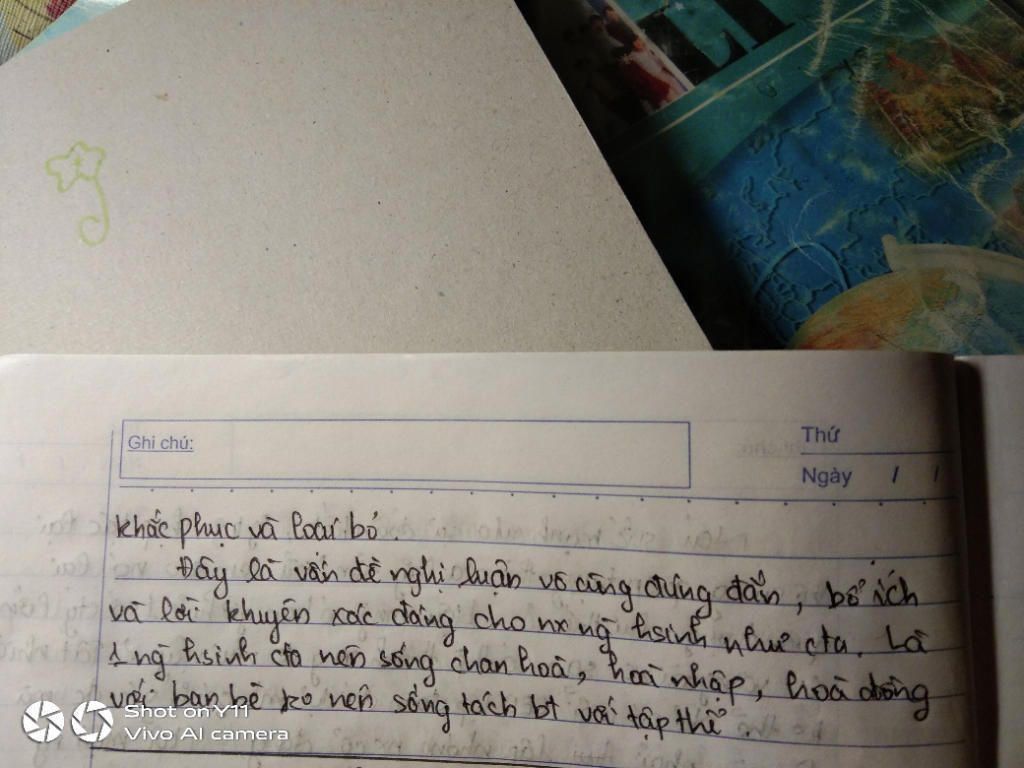 Ghi chú:
Thứ
Ngày / /
khắc phục và loại bỏ.
Đây là vấn đề nghị luận vô cùng đúng đắn, bổ ích
và lời khuyên xác đáng cho nx ng hsinh như cta. Là
1 ng hsinh cta nên sống chan hoà, hoà nhập, hoà đồng
với bạn bè ko nên sống tách bt với tập thể
Shot on Y11
Vivo AI camera